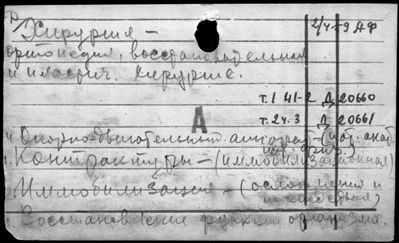 Хирургия – 2/4-59 ДФ
ортопедия, восстановительная
и пластич. хирургия.
т.1 41-2 Д 20660
А т.2ч.3 Д 20661
Опорно-двигательный аппарат –
Контрактуры – (иммобилизационная)
Иммобилизация – (осложнения и
Восстановление функции организма.